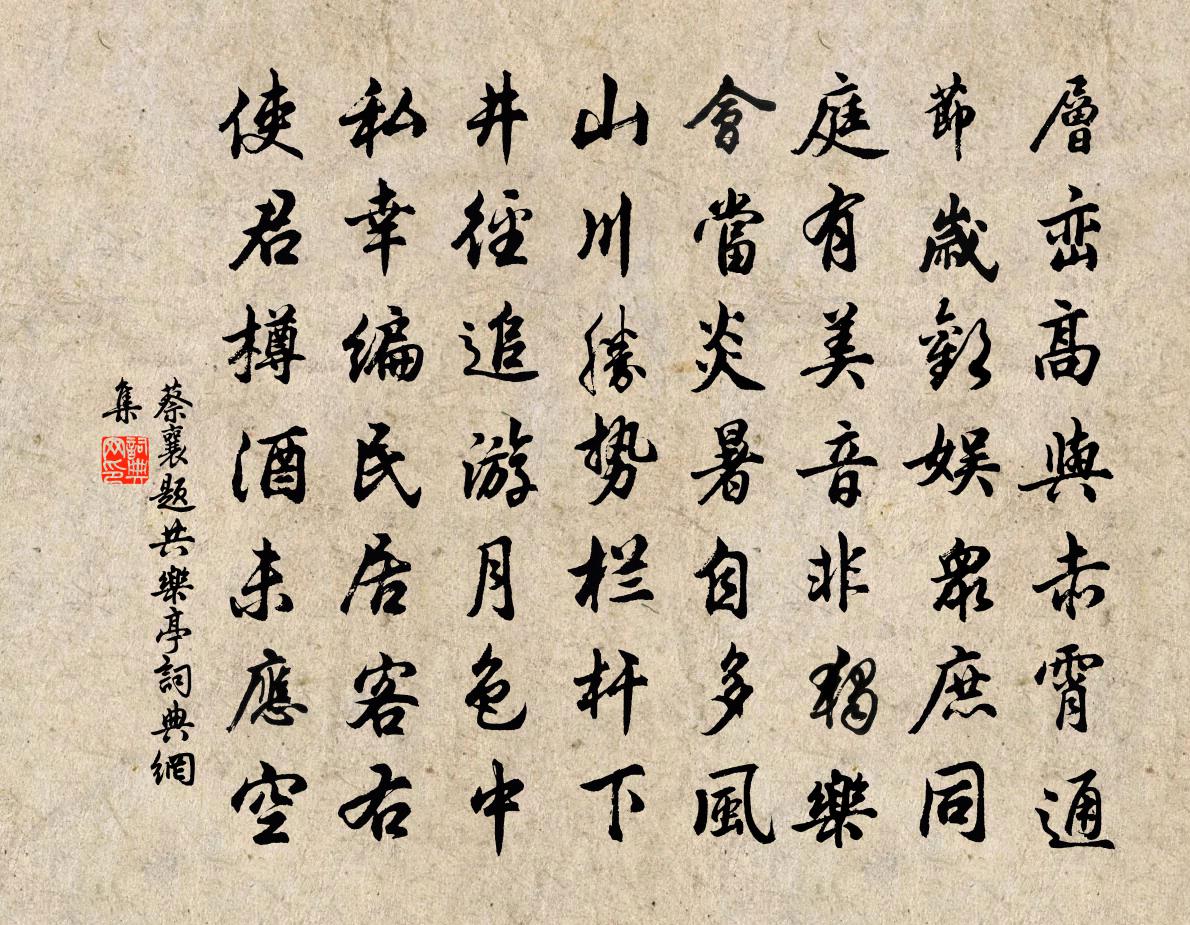 層巒高與赤霄通
節歲歡娱眾庶同
庭有美音非獨樂
會當炎暑自多風
山川勝势栏杆下
井徑追游月色中
私幸编民居客右
使君樽酒未應空
蔡襄題共樂亭詞典網
集
詞典
网印